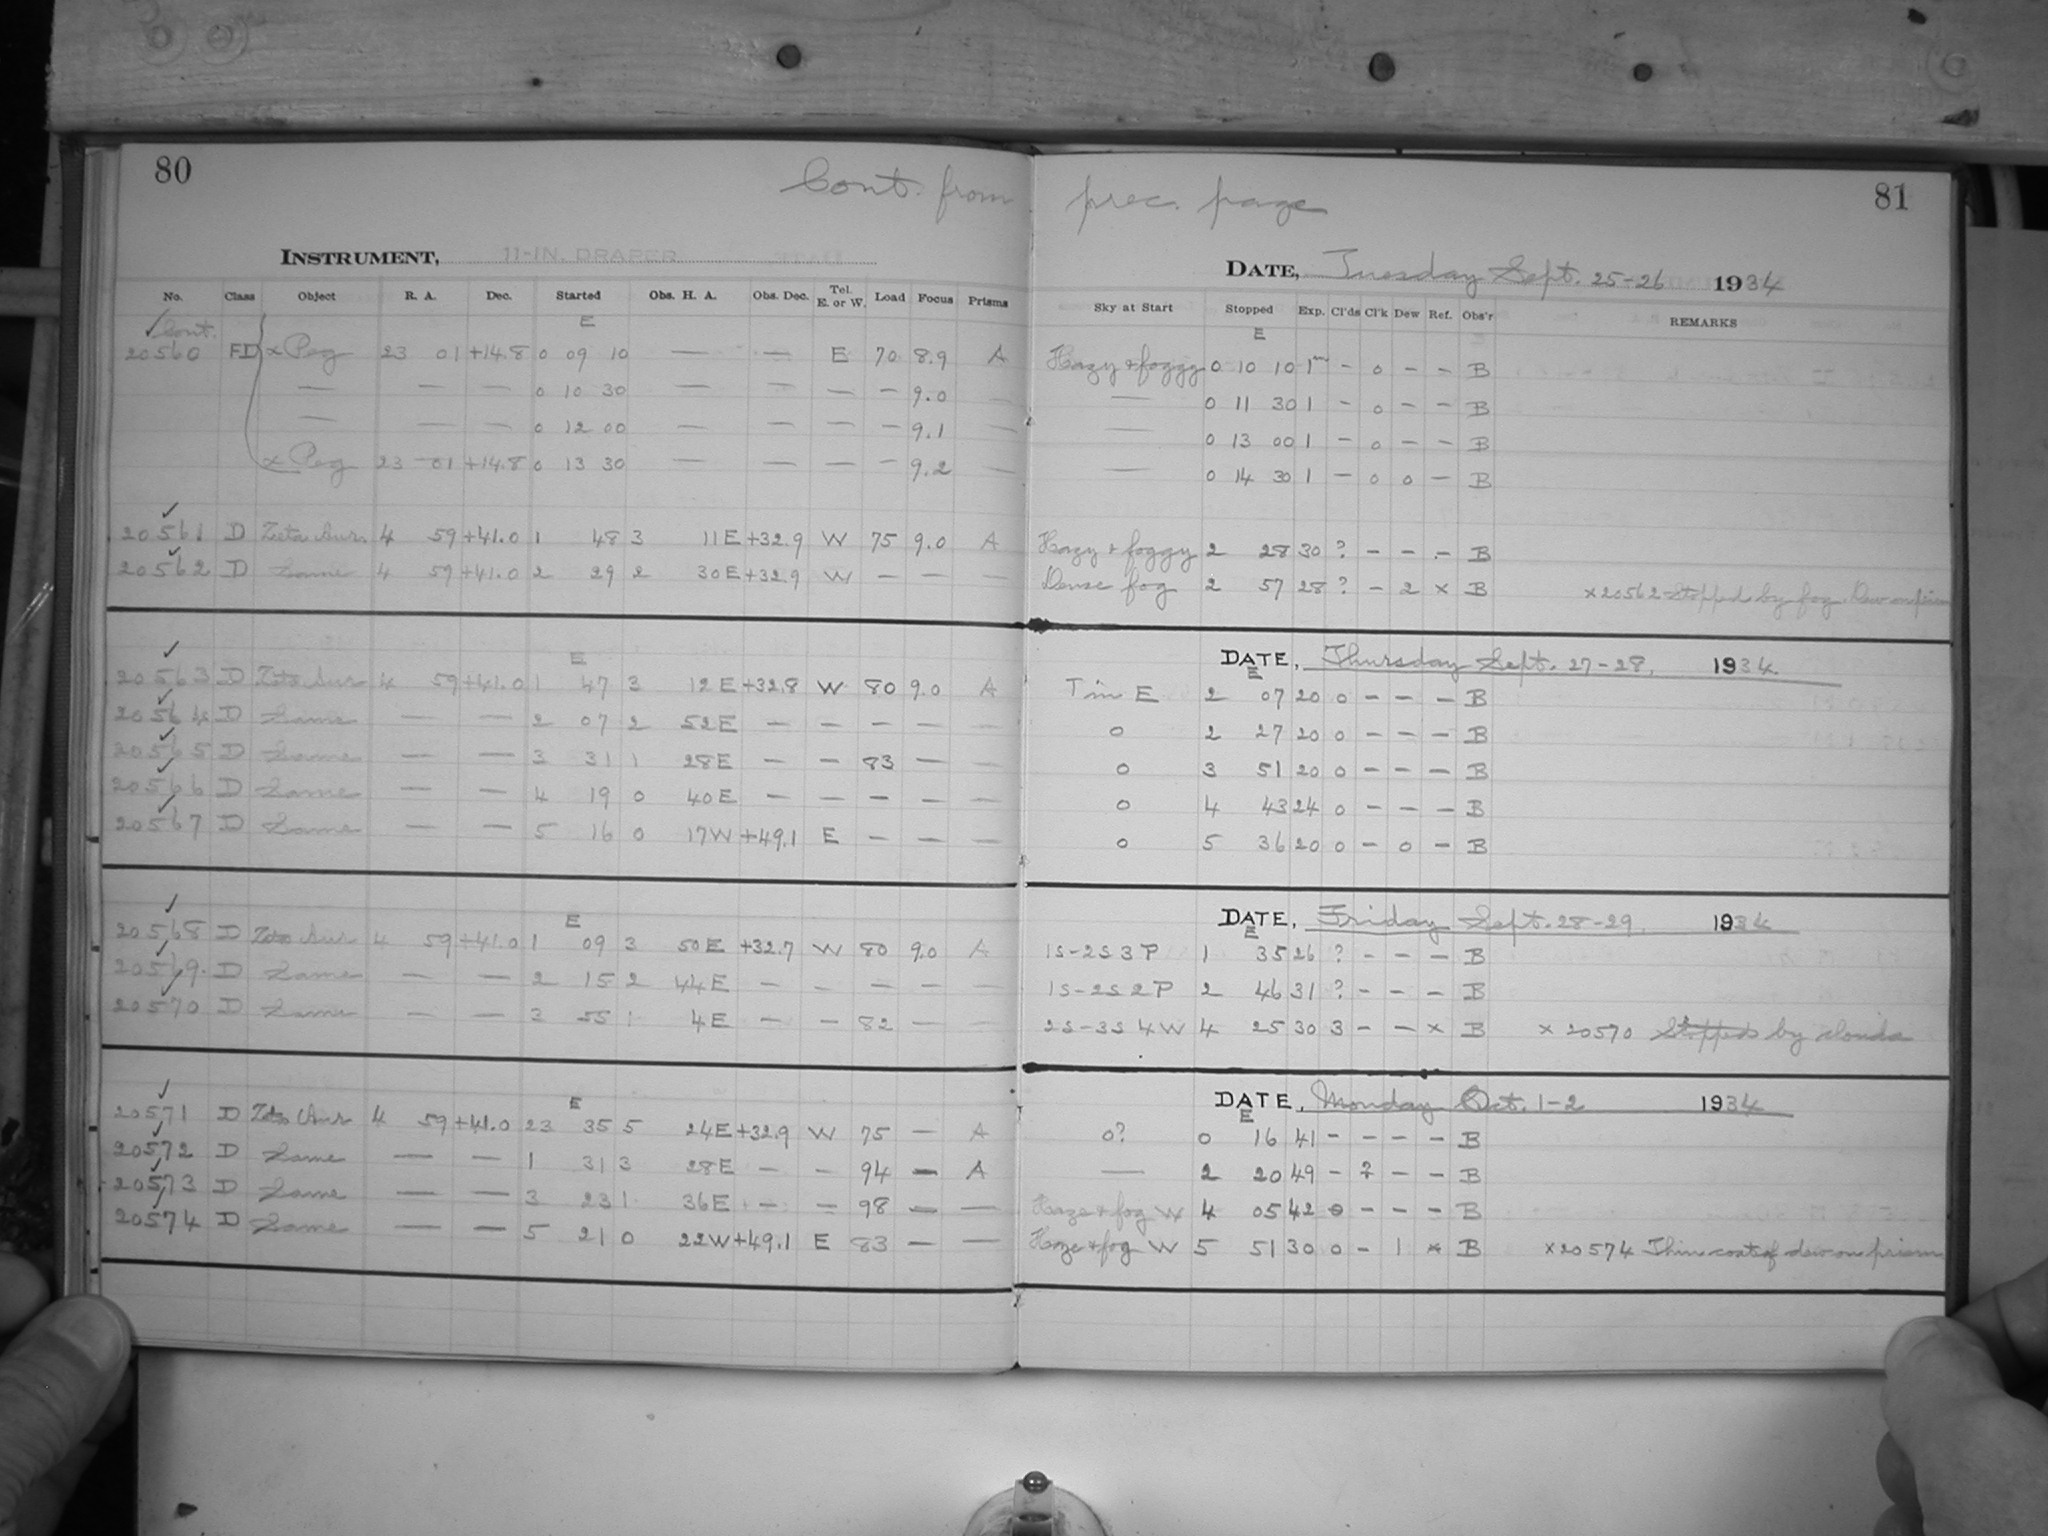 80
Cont. from prec. page
81
INSTRUMENT, 11-IN. DRAPER
DATE, Tuesday Sept. 25-26 1934
No. Class Object R. A. Dec. Started Obs. H. A. Obs. Dec. Tel. E. or W. Load Focus Prisms Sky at Start Stopped Exp. Cl'ds Cl'k Dew Ref. Obs'r REMARKS
✓ Cont. E E
20560 FD α Peg 23 01 +14.8 0 09 10 — — E 70 8.9 A Hazy & foggy 0 10 10 1m - 0 - - B
— — — 0 10 30 — — — — 9.0 — — 0 11 30 1 - 0 - - B
— — — 0 12 00 — — — — 9.1 — — 0 13 00 1 - 0 - - B
α Peg 23 01 +14.8 0 13 30 — — — — 9.2 — — 0 14 30 1 - 0 0 - B
20561 D Zeta Aur. 4 59 +41.0 1 48 3 11E +32.9 W 75 9.0 A Hazy & foggy 2 28 30 ? - - - B
20562 D Same 4 59 +41.0 2 29 2 30E +32.9 W — — — Dense fog 2 57 28 ? - 2 x B x 20562 Stopped by fog. Dew on prism
DATE, Thursday Sept. 27-28, 1934
E E
20563 D Zeta Aur 4 59 +41.0 1 47 3 12E +32.8 W 80 9.0 A T in E 2 07 20 0 - - - B
20564 D Same — — 2 07 2 52E — — — — — 0 2 27 20 0 - - - B
20565 D Same — — 3 31 1 28E — — 83 — — 0 3 51 20 0 - - - B
20566 D Same — — 4 19 0 40E — — — — — 0 4 43 24 0 - - - B
20567 D Same — — 5 16 0 17W +49.1 E — — — 0 5 36 20 0 - 0 - B
DATE, Friday Sept. 28-29, 1934
E E
20568 D Zeta Aur 4 59 +41.0 1 09 3 50E +32.7 W 80 9.0 A 1S-2S 3 P 1 35 26 ? - - - B
20569. D Same — — 2 15 2 44E — — — — — 1S-2S 2 P 2 46 31 ? - - - B
20570 D Same — — 3 55 1 4E — — 82 — — 2S-3S 4 W 4 25 30 3 - - x B x 20570 Stopped by clouds
DATE, Monday Oct. 1-2 1934
E E
20571 D Zeta Aur 4 59 +41.0 23 35 5 24E +32.9 W 75 — A 0? 0 16 41 - - - - B
20572 D Same — — 1 31 3 28E — — 94 — A — 2 20 49 - ? - - B
20573 D Same — — 3 23 1 36E — — 98 — — Haze & fog W 4 05 42 0 - - - B
20574 D Same — — 5 21 0 22W +49.1 E 83 — — Haze & fog W 5 51 30 0 - 1 x B x 20574 Thin coat of dew on prism